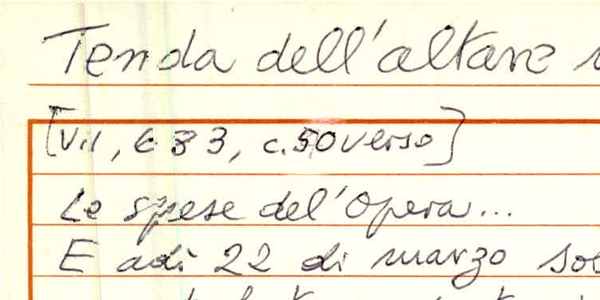 Tenda dell'altare
[VII, 633, c.50verso]
Le spese del'Opera...
E adì 22 di marzo